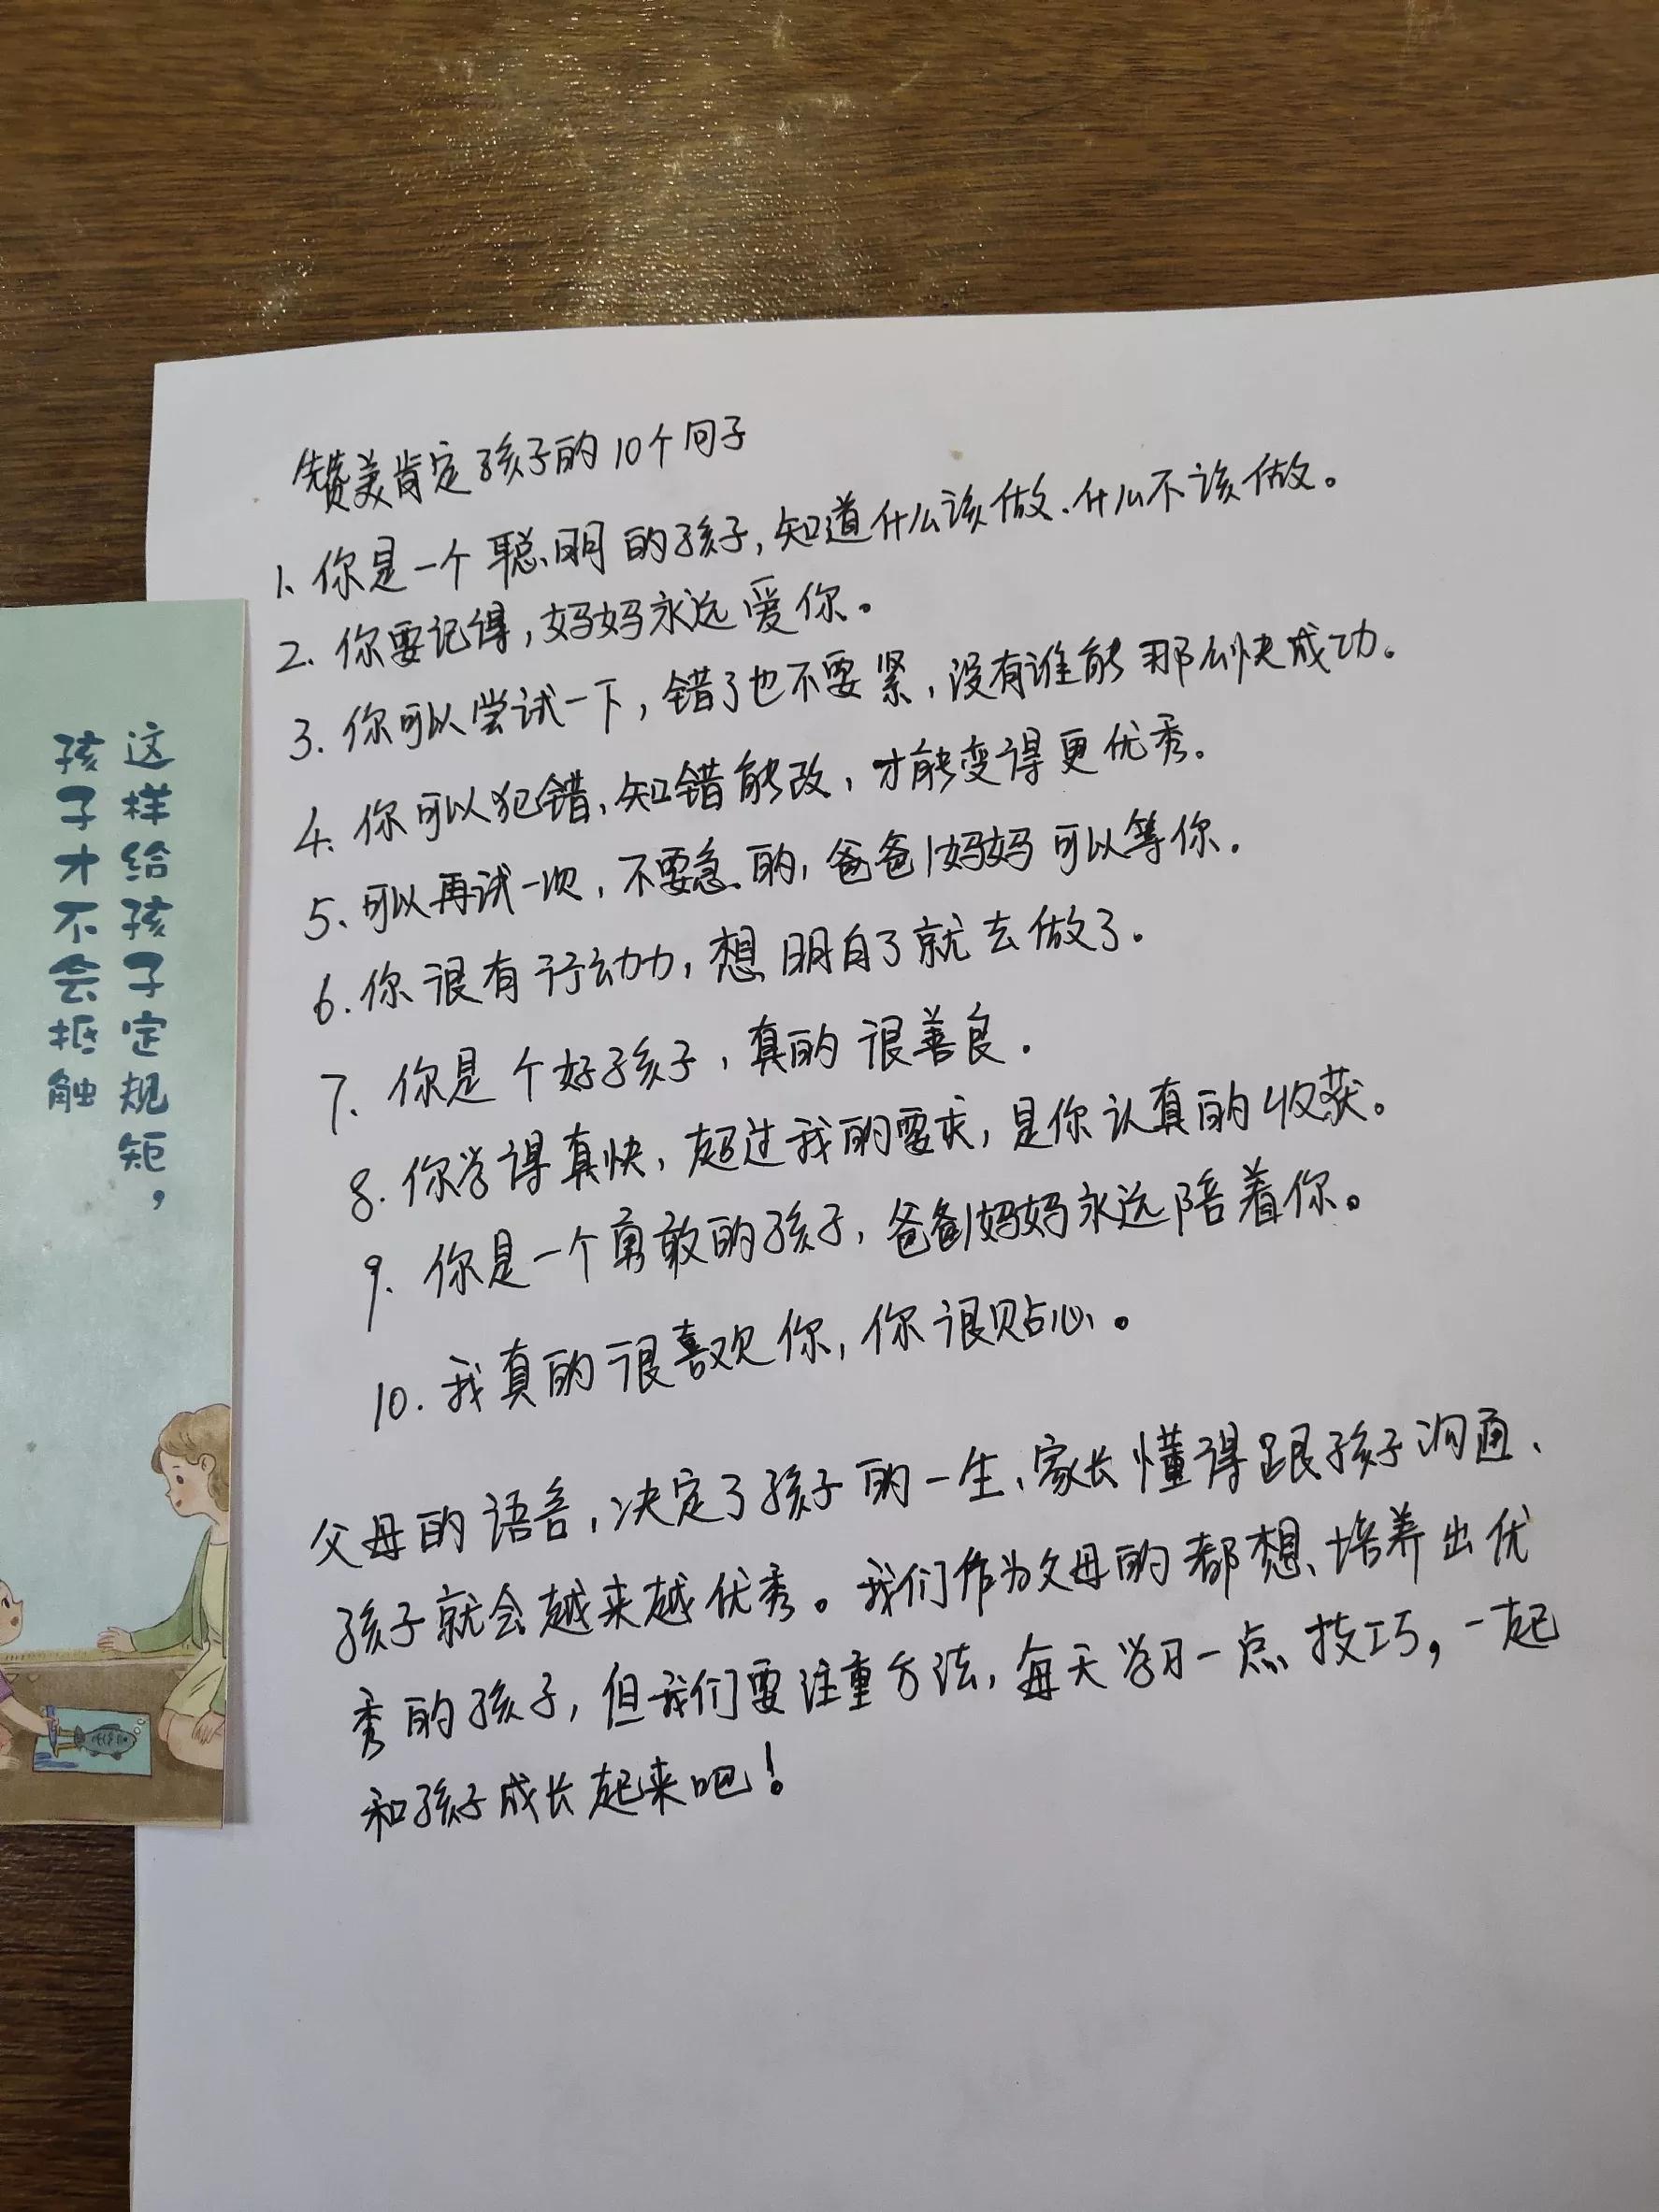 赞美肯定孩子的10个句子
1、你是一个聪明的孩子,知道什么该做、什么不该做。
2、你要记得,妈妈永远爱你。
3、你可以尝试一下,错了也不要紧,没有谁能那么快成功。
4、你可以犯错,知错能改,才能变得更优秀。
5、可以再试一次,不要急的,爸爸妈妈可以等你.
6.你很有行动力,想明白了就去做了.
7、你是个好孩子,真的很善良.
8.你学得真快,超过我的要求,是你认真的收获。
9、你是一个勇敢的孩子,爸爸妈妈永远陪着你。
10.我真的很喜欢你,你很贴心。
父母的语言,决定了孩子的一生,家长懂得跟孩子沟通、
孩子就会越来越优秀。我们作为父母的都想培养出优
秀的孩子,但我们要注重方法,每天学习一点技巧,一起
和孩子成长起来吧!
这样给孩子定规矩,
孩子才不会抵触